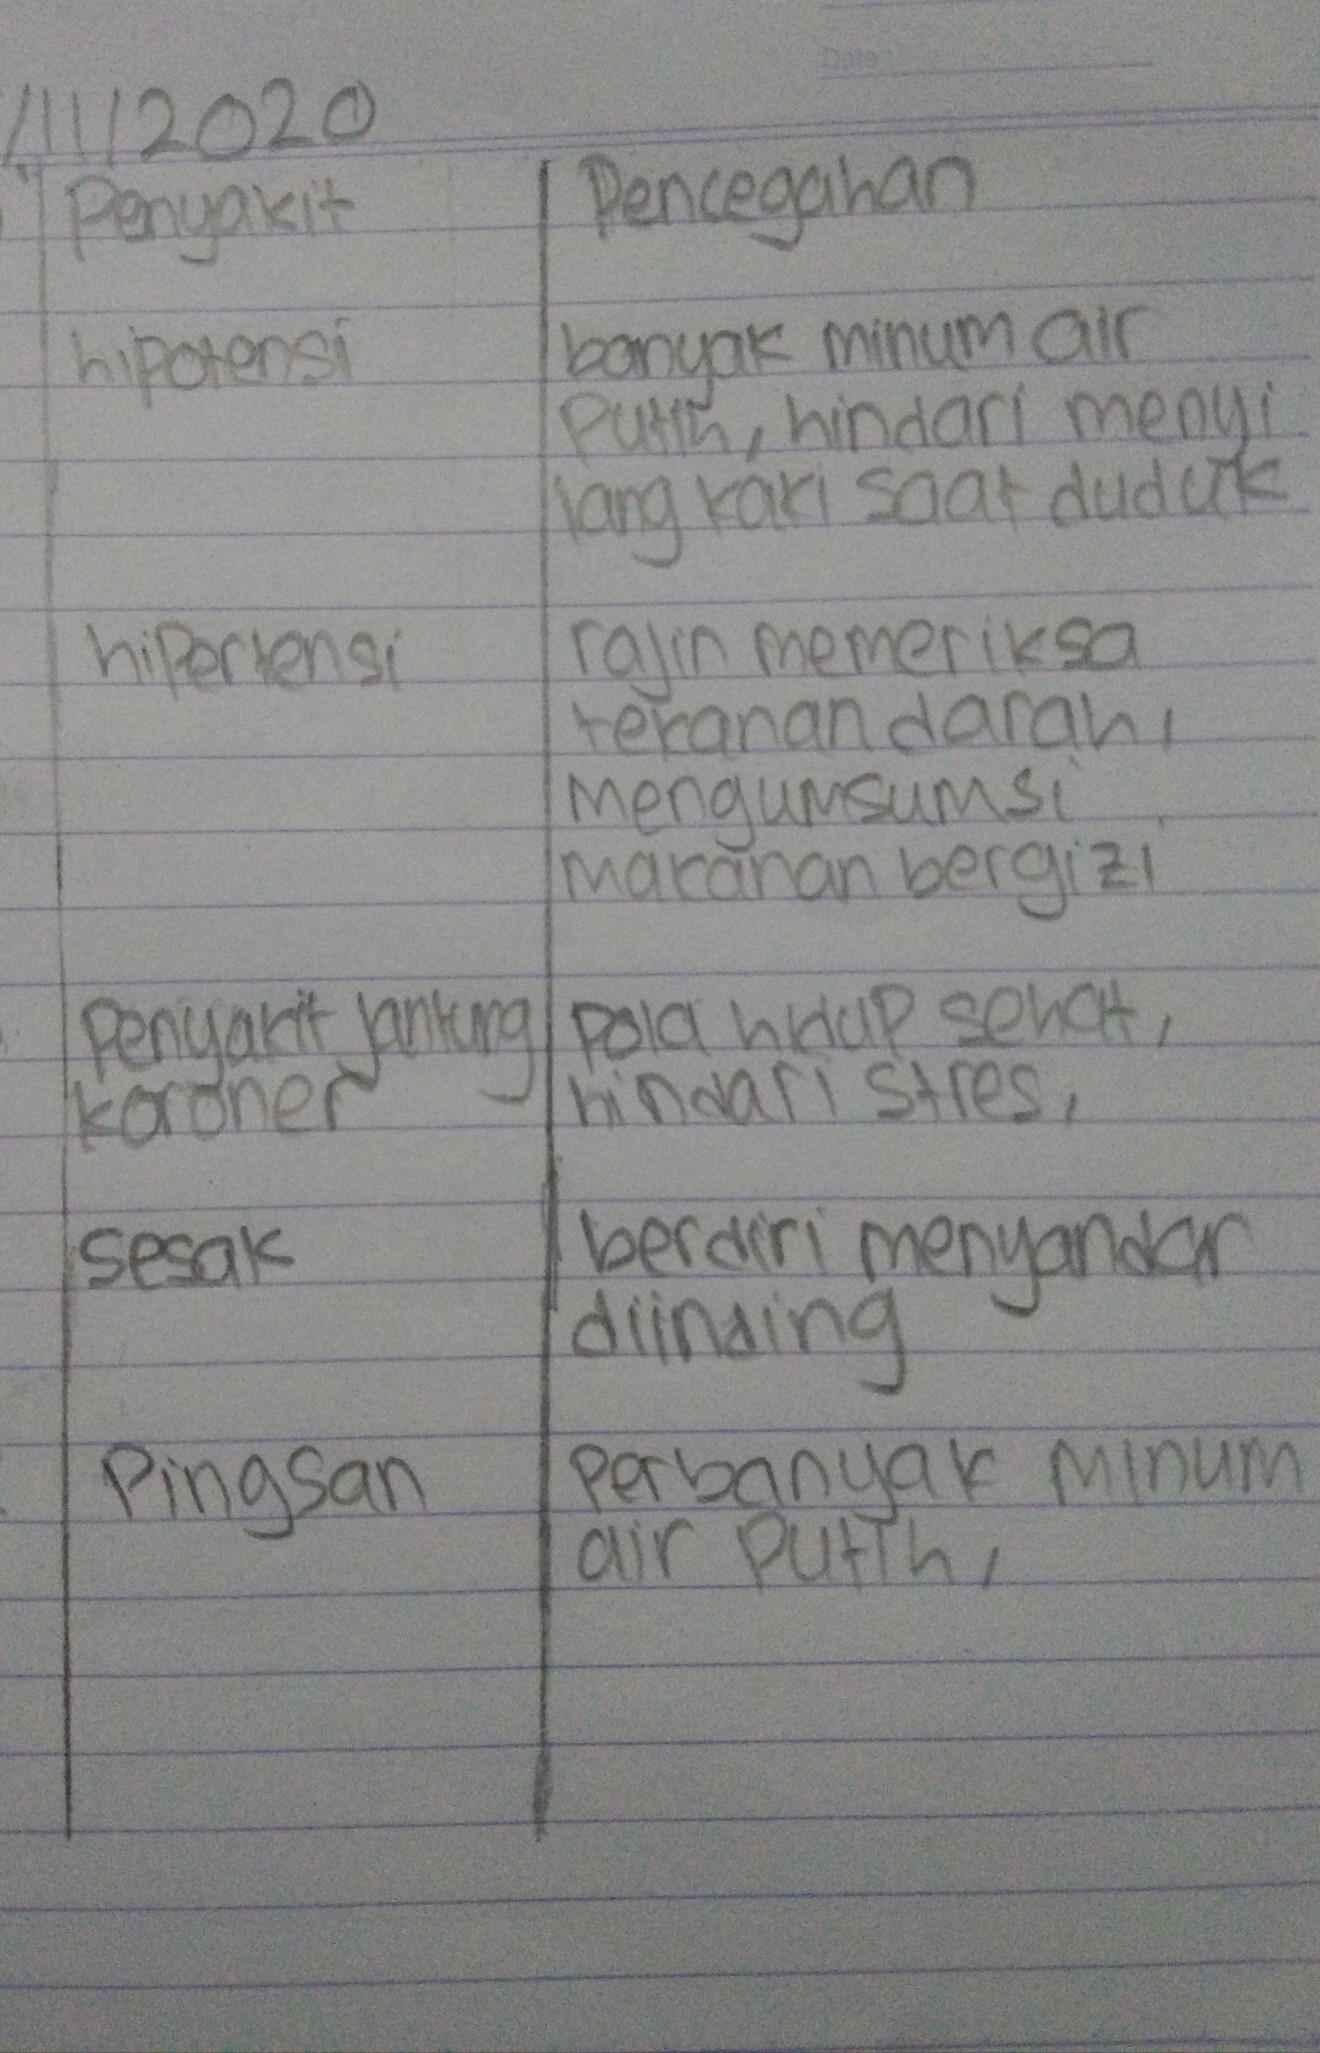 Date :
/11/2020
Penyakit Pencegahan
hipotensi banyak minum air
Putih, hindari menyi
lang kaki saat duduk
hipertensi rajin memeriksa
tekanan darah,
mengumsumsi
makanan bergizi
Penyakit jantung Pola hidup sehat,
koroner hindari stres,
sesak berdiri menyandar
diinding
Pingsan Perbanyak minum
air Putih,